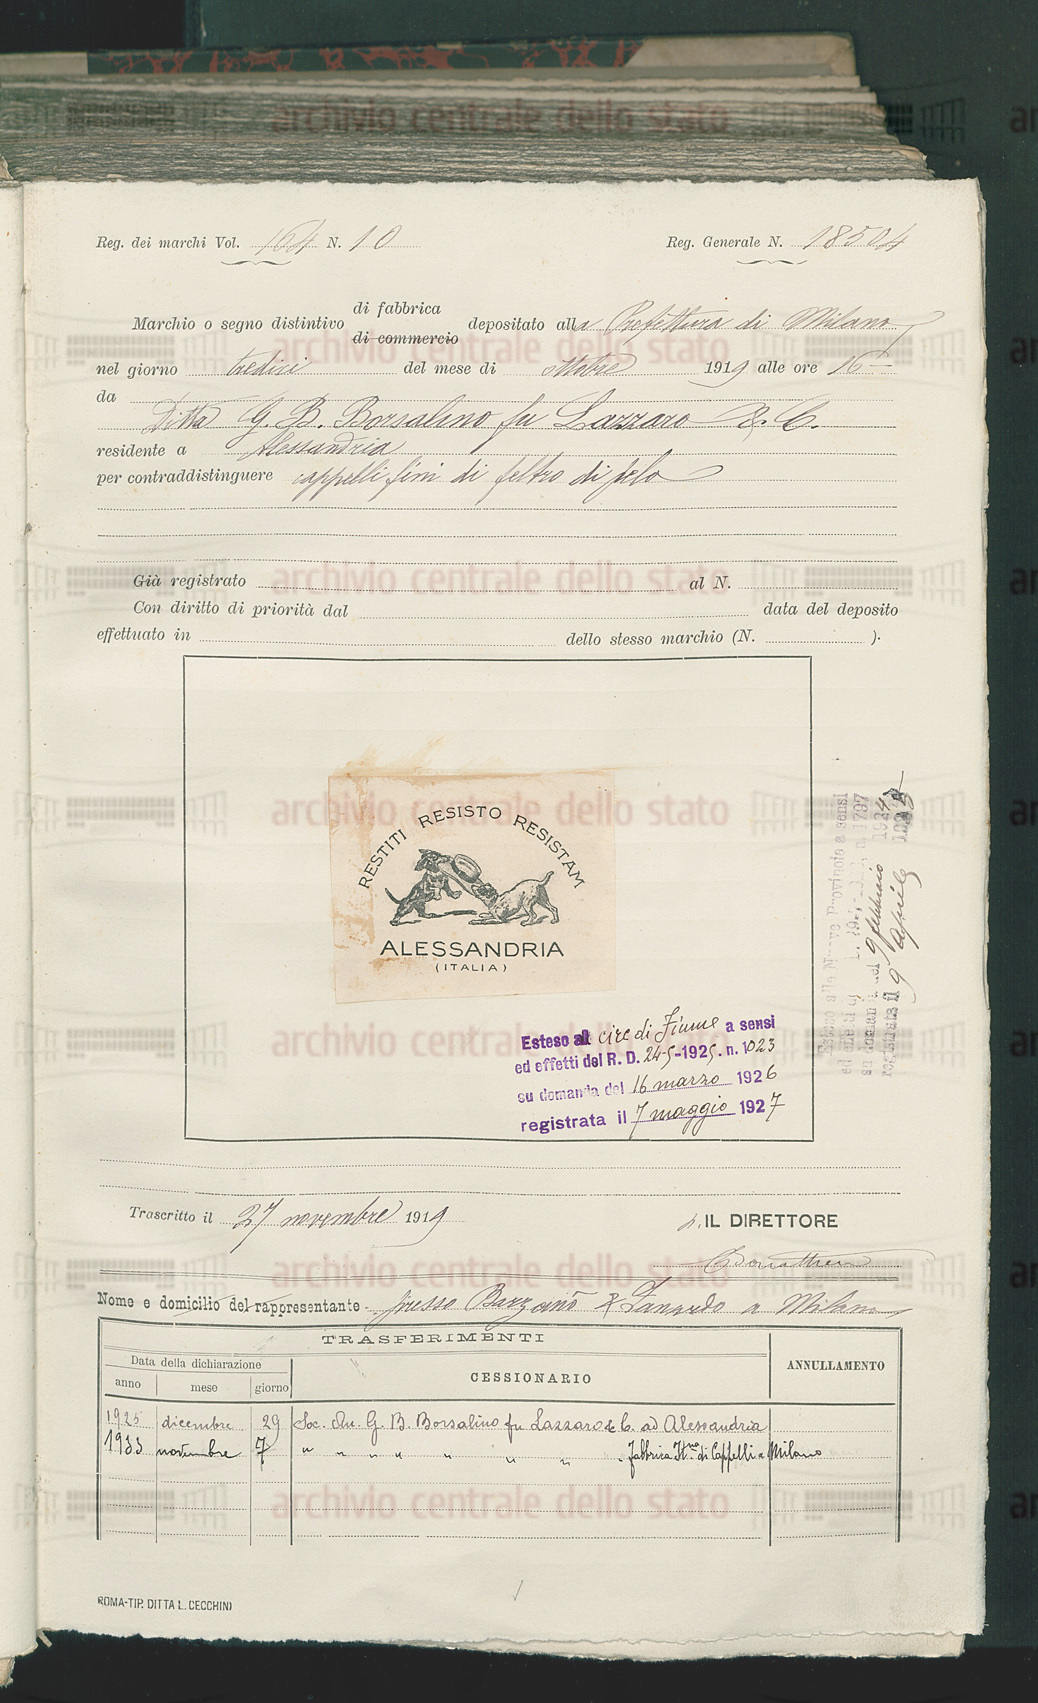 Reg. dei marchi Vol. 164 N. 10
Reg. Generale N. 18504
Marchio o segno distintivo di fabbrica di commercio depositato alla Prefettura di Milano
nel giorno tredici del mese di ottobre 1919 alle ore 16
da
Ditta G. B. Borsalino fu Lazzaro & C.
residente a Alessandria
per contraddistinguere cappelli fini di feltro di pelo
Già registrato al N.
Con diritto di priorità dal data del deposito
effettuato in dello stesso marchio (N. ).
RESTITI RESISTO RESISTAM
ALESSANDRIA
(ITALIA)
Esteso al circ di Fiume a sensi
ed effetti del R. D. 24-5-1925. n. 1023
su domanda del 16 marzo 1926
registrata il 7 maggio 1927
Esteso alle Nuove Provincie a sensi
9 febbraio 1924
registrata il 9 aprile
Trascritto il 27 novembre 1919
IL DIRETTORE
Nome e domicilio del rappresentante presso Barzanò & Zanardo a Milano
TRASFERIMENTI
Data della dichiarazione
anno mese giorno
CESSIONARIO
ANNULLAMENTO
1925 dicembre 29 Soc. An. G. B. Borsalino fu Lazzaro & C. ad Alessandria
1933 novembre 7 " " " " " " " " Fabbrica It.na di Cappelli a Milano
ROMA-TIP. DITTA L. CECCHINI
archivio centrale dello stato
archivio centrale dello stato
archivio centrale dello stato
archivio centrale dello stato
archivio centrale dello stato
archivio centrale dello stato
archivio centrale dello stato